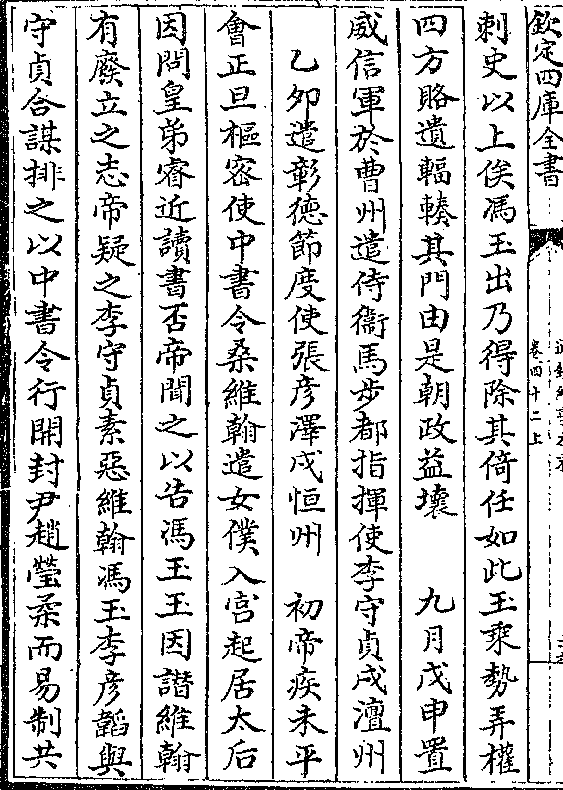 欽定四庫全書
卷四十二上
刺史以上俟馮玉出乃得除其倚任如此玉乘勢弄權
四方賂遺輻輳其門由是朝政益壞　九月戊申置
威信軍於曹州遣侍衞馬步都指揮使李守貞戍澶州
乙卯遣彰德節度使張彦澤戍恒州　初帝疾未平
會正旦樞密使中書令桑維翰遣女僕入宫起居太后
因問皇弟睿近讀書否帝聞之以告馮玉玉因譖維翰
有廢立之志帝疑之李守貞素惡維翰馮玉李彦韜與
守貞合謀排之以中書令行開封尹趙瑩柔而易制共